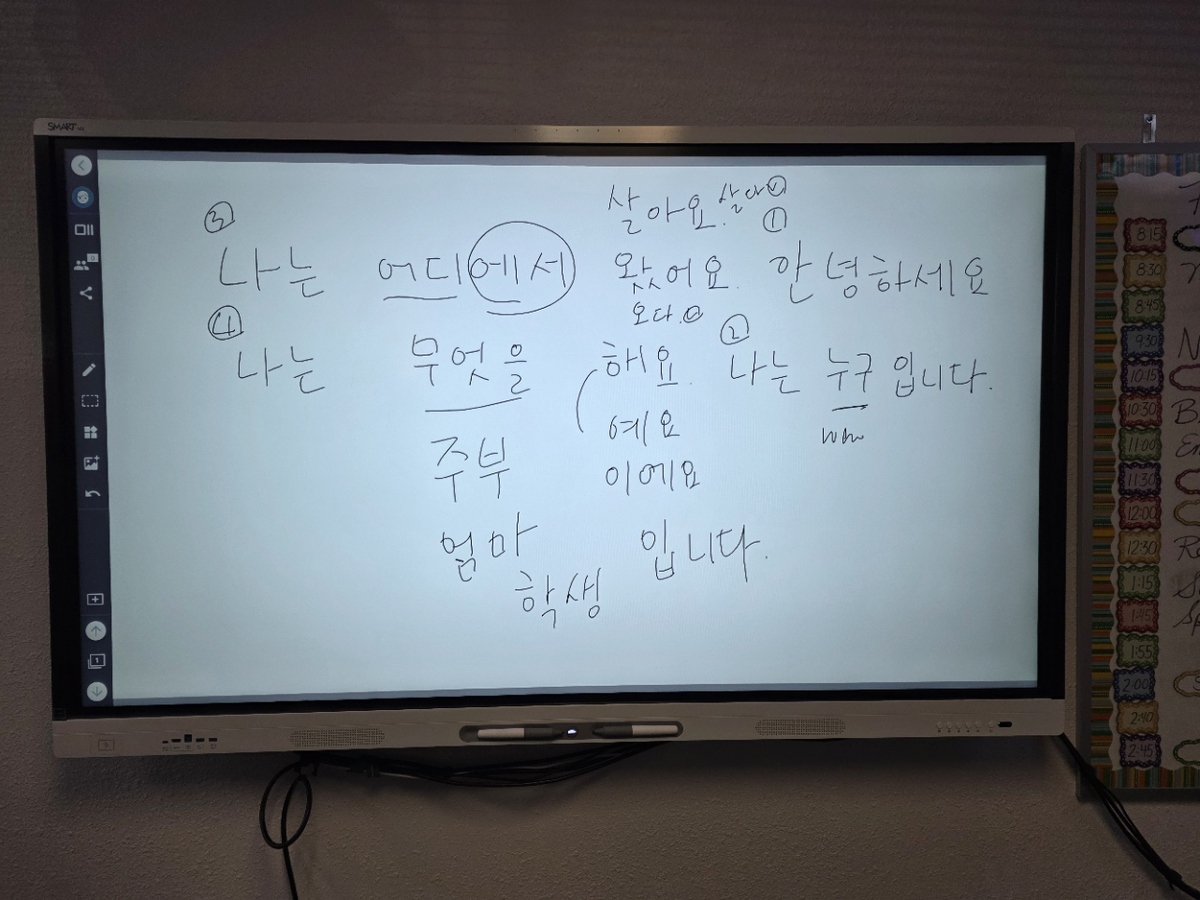 SMART
살아요. 살다 ⓥ
③ ①
나는 어디에서 왔어요. 안녕하세요
④ 오다. ⓥ ②
나는 무엇을 해요. 나는 누구 입니다.
예요 who
주부 이에요
엄마 입니다.
학생
8:15
8:30
8:45
9:30
10:15
10:30
11:00
11:30
12:00
12:30
1:15
1:45
1:55
2:00
2:40
2:45